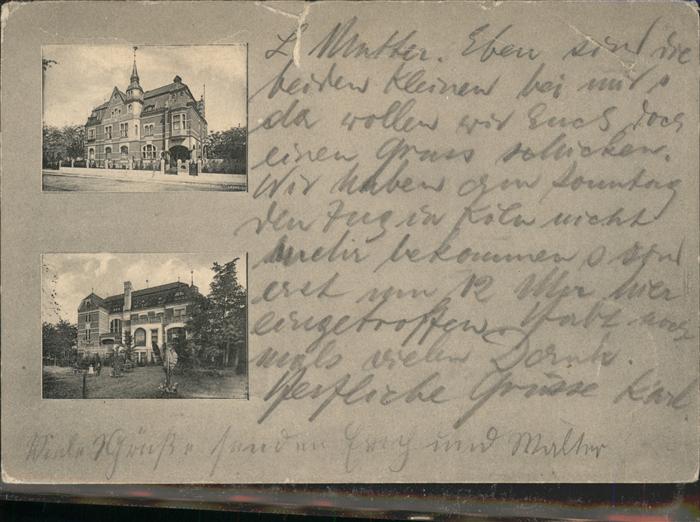 L Mutter. Eben sind die
beiden Kleinen bei mir &
da wollen wir Euch doch
einen Gruss schicken.
Wir haben am Sonntag
den Zug in Köln nicht
mehr bekommen & sind
erst um 12 Uhr hier
eingetroffen. Habt noch
mals vielen Dank.
Herzliche Grüsse Karl.
Viele Grüße senden Erich und Walter